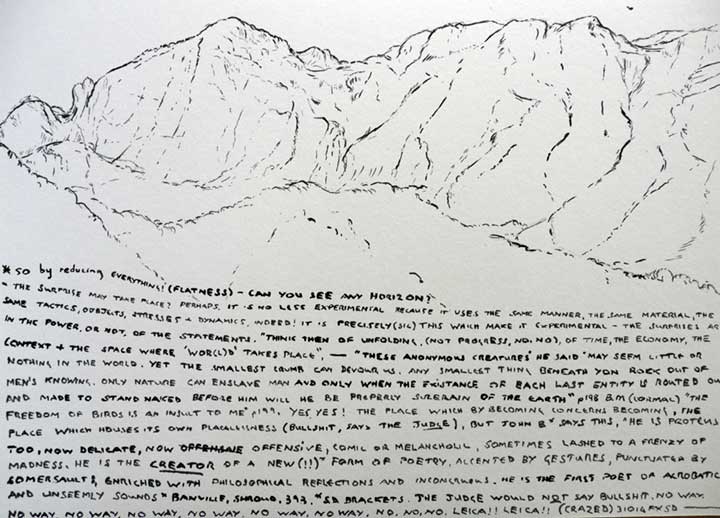 * SO by reducing EVERYTHING! (FLATNESS) - CAN YOU SEE ANY HORIZON?
"THE SURPRISE MAY TAKE PLACE? PERHAPS. IT IS NO LESS EXPERIMENTAL BECAUSE IT USES THE SAME MANNER, THE SAME MATERIAL, THE
SAME TACTICS, OBJECTS, STRESSES + DYNAMICS, INDEED! IT IS PRECISELY (SIC) THIS WHICH MAKE IT EXPERIMENTAL - THE SURPRISES AR
IN THE POWER, OR NOT, OF THE STATEMENTS. "THINK THEN OF UNFOLDING, (NOT PROGRESS, NO, NO), OF TIME, THE ECONOMY, THE
CONTEXT + THE SPACE WHERE 'WOR(L)D' TAKES PLACE", — "THESE ANONYMOUS CREATURES' HE SAID 'MAY SEEM LITTLE OR
NOTHING IN THE WORLD. YET THE SMALLEST CRUMB CAN DEVOUR US. ANY SMALLEST THING BENEATH YON ROCK OUT OF
MEN'S KNOWING. ONLY NATURE CAN ENSLAVE MAN AND ONLY WHEN THE EXISTANCE OF EACH LAST ENTITY IS ROUTED OU
AND MADE TO STAND NAKED BEFORE HIM WILL HE BE PROPERLY SUZERAIN OF THE EARTH" p198 B.M (CORMAC) "THE
FREEDOM OF BIRDS IS AN INSULT TO ME" p199. YES YES! THE PLACE WHICH BY BECOMING CONCERNS BECOMING, THE
PLACE WHICH HOUSES ITS OWN PLACELESSNESS (BULLSHIT, SAYS THE JUDGE), BUT JOHN B* SAYS THIS, "HE IS PROTEUS
TOO, NOW DELICATE, NOW OFFENSIVE, COMIC OR MELANCHOLIC, SOMETIMES LASHED TO A FRENZY OF
MADNESS. HE IS THE CREATOR OF A NEW (!!)* FORM OF POETRY, ACCENTED BY GESTURES, PUNCTUATED BY
SOMERSAULTS, ENRICHED WITH PHILOSOPHICAL REFLECTIONS AND INCONGRUOUS. HE IS THE FIRST POET OF ACROBATIC
AND UNSEEMLY SOUNDS" BANVILLE, SHROUD, 393. BRACKETS. THE JUDGE WOULD NOT SAY BULLSHIT. NO WAY.
NO WAY. NO WAY. NO WAY. NO WAY. NO WAY. NO WAY. NO WAY. NO, NO, NO. LEICA!! LEICA!! (CRAZED) 31014